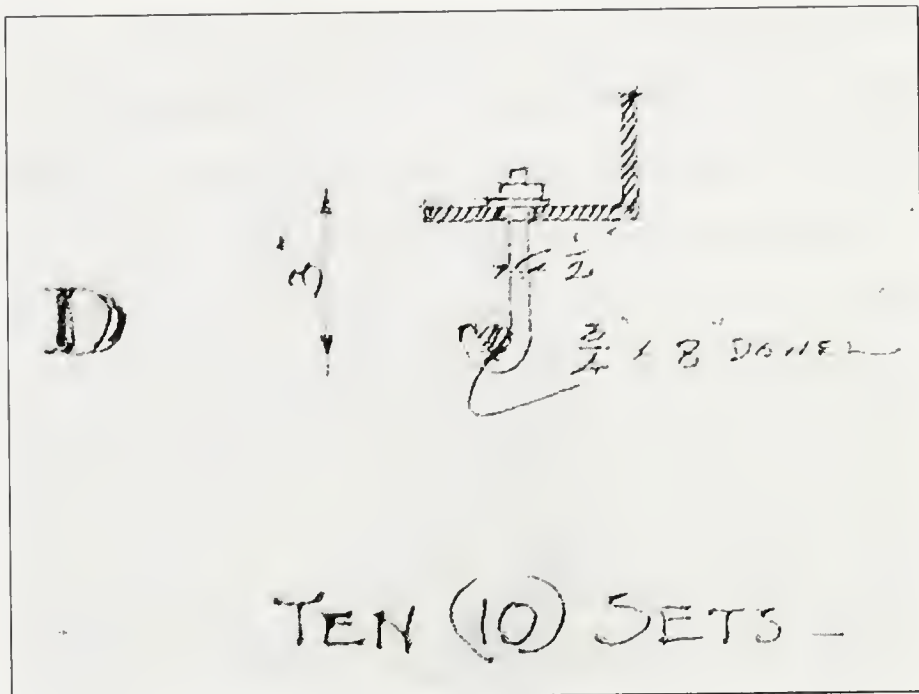 D
3"
1/2"
3/4" x 8" DOWEL
TEN (10) SETS –